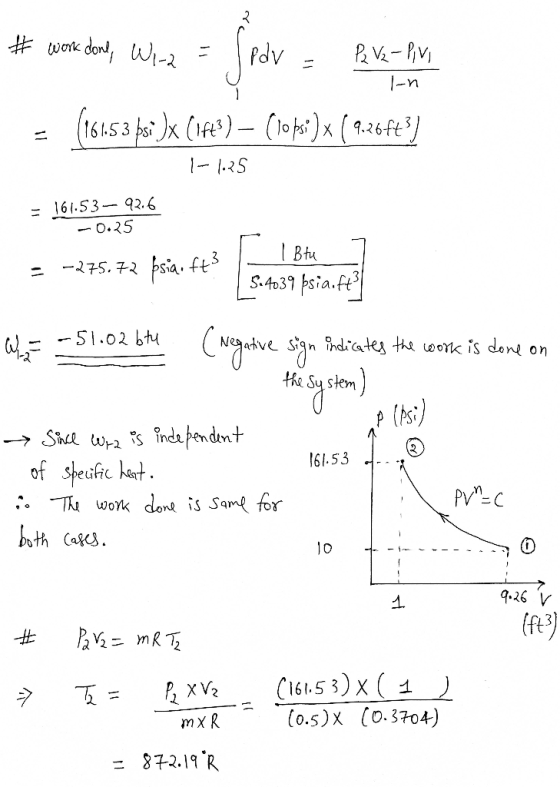 # work done, W₁₋₂ = ∫₁² PdV = (P₂V₂ − P₁V₁)/(1−n)
= ((161.53 psi) x (1ft³) − (10 psi) x (9.26ft³))/(1−1.25)
= (161.53 − 92.6)/(−0.25)
= −275.72 psia.ft³ [1 Btu / 5.4039 psia.ft³]
W₁₋₂ = −51.02 btu (Negative sign indicates the work is done on
the system)
→ Since W₁₋₂ is independent
of specific heat.
∴ The work done is same for
both cases.
P (psi)
161.53
②
PVⁿ=C
10
①
1
9.26 V
(ft³)
# P₂V₂ = mRT₂
⇒ T₂ = (P₂ x V₂)/(m x R) = ((161.53) x (1))/((0.5) x (0.3704))
= 872.19°R